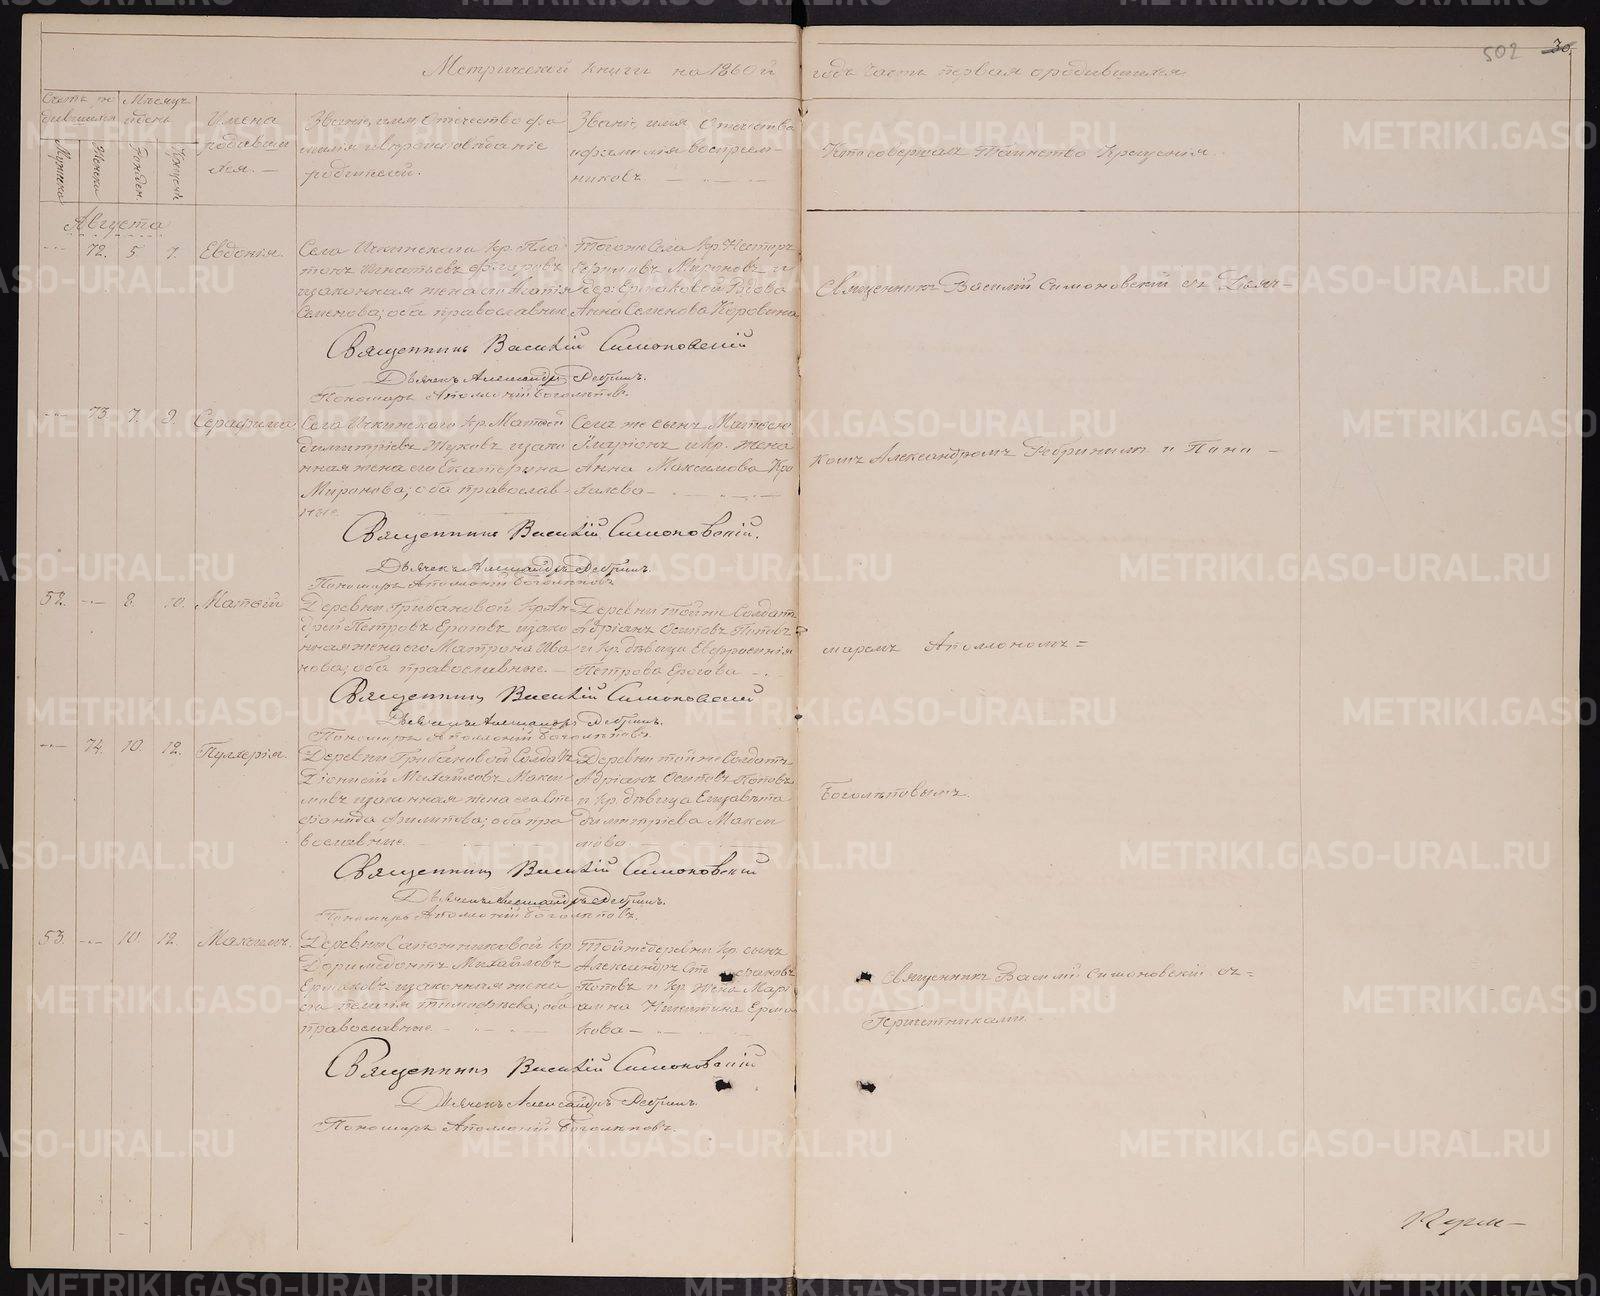 Метрической книги на 1860й годъ часть первая о родившихся
502
30
Счетъ ро
дившихся
Мѣсяцъ
и день
Имена
родивши
хся. —
Званіе, имя, отечество фа
милія и вѣроисповѣданіе
родителей.
Званіе, имя отечество
и фамилія воспріем-
никовъ
Кто совершалъ таинство крещенія.
Мужеска
Женска
Рожден.
Крещен.
Августа
72. 5 7. Евдокія.
Села Ичкинскаго кр. Пла
тонъ Игнатьевъ
и законная жена его
Семенова; оба православные
Тогоже Села кр. Несторъ
Мироновъ и
дер: Ермаковой вдова
Анна Семенова Коровина
Священникъ Василій Симоновскій съ Дьяч-
Священникъ Василій Симоновскій
Дьячекъ Александръ Ребринъ.
Пономарь Аполлоній Боголѣповъ.
73. 7. 9. Серафима
Села Ичкинскаго кр. Матвѣй
Димитріевъ Жуковъ и зако
нная жена его Екатерина
Миронова; оба православ-
ные.
Села же сынъ Матвѣевъ
Иларіонъ и кр. жена
Анна Максимова
комъ Александромъ Ребринымъ и Поно-
Священникъ Василій Симоновскій.
Дьячекъ Александръ Ребринъ.
Пономарь Аполлоній Боголѣповъ
52. 8. 10. Матѳій
Деревни Грибановой кр. Ан-
дрей Петровъ Ероговъ и зако
нная жена его Матрона Ива
нова; оба православные. —
Деревни тойже Солдатъ
Адріанъ Осиповъ Поповъ
и кр. дѣвица Евфросинія
Петрова Ерогова
маремъ Аполлономъ=
Священникъ Василій Симоновскій
Дьячекъ Александръ Ребринъ.
Пономарь Аполлоній Боголѣповъ.
74. 10. 12. Пулхерія.
Деревни Грибановой Солдатъ
Діонисій Михайловъ Макси
мовъ и законная жена его Сте
фанида Филипова; оба пра
вославные.
Деревни тойже Солдатъ
Адріанъ Осиповъ Поповъ
и кр. дѣвица Елизавета
Димитріева Макси
мова
Боголѣповымъ.
Священникъ Василій Симоновскій
Дьячекъ Александръ Ребринъ.
Пономарь Аполлоній Боголѣповъ.
53. 10. 12. Максимъ.
Деревни Сапожниковой кр.
Доримедонтъ Михайловъ
Ермаковъ и законная жена
его Пелагія Тимофѣева; оба
православные
Тойже деревни кр. сынъ
Александръ
Поповъ и кр. жена Марі
амна Никитина Ерма
кова
Священникъ Василій Симоновскій съ=
Причетниками.
Священникъ Василій Симоновскій
Дьячекъ Александръ Ребринъ.
Пономарь Аполлоній Боголѣповъ.
METRIKI.GASO-URAL.RU